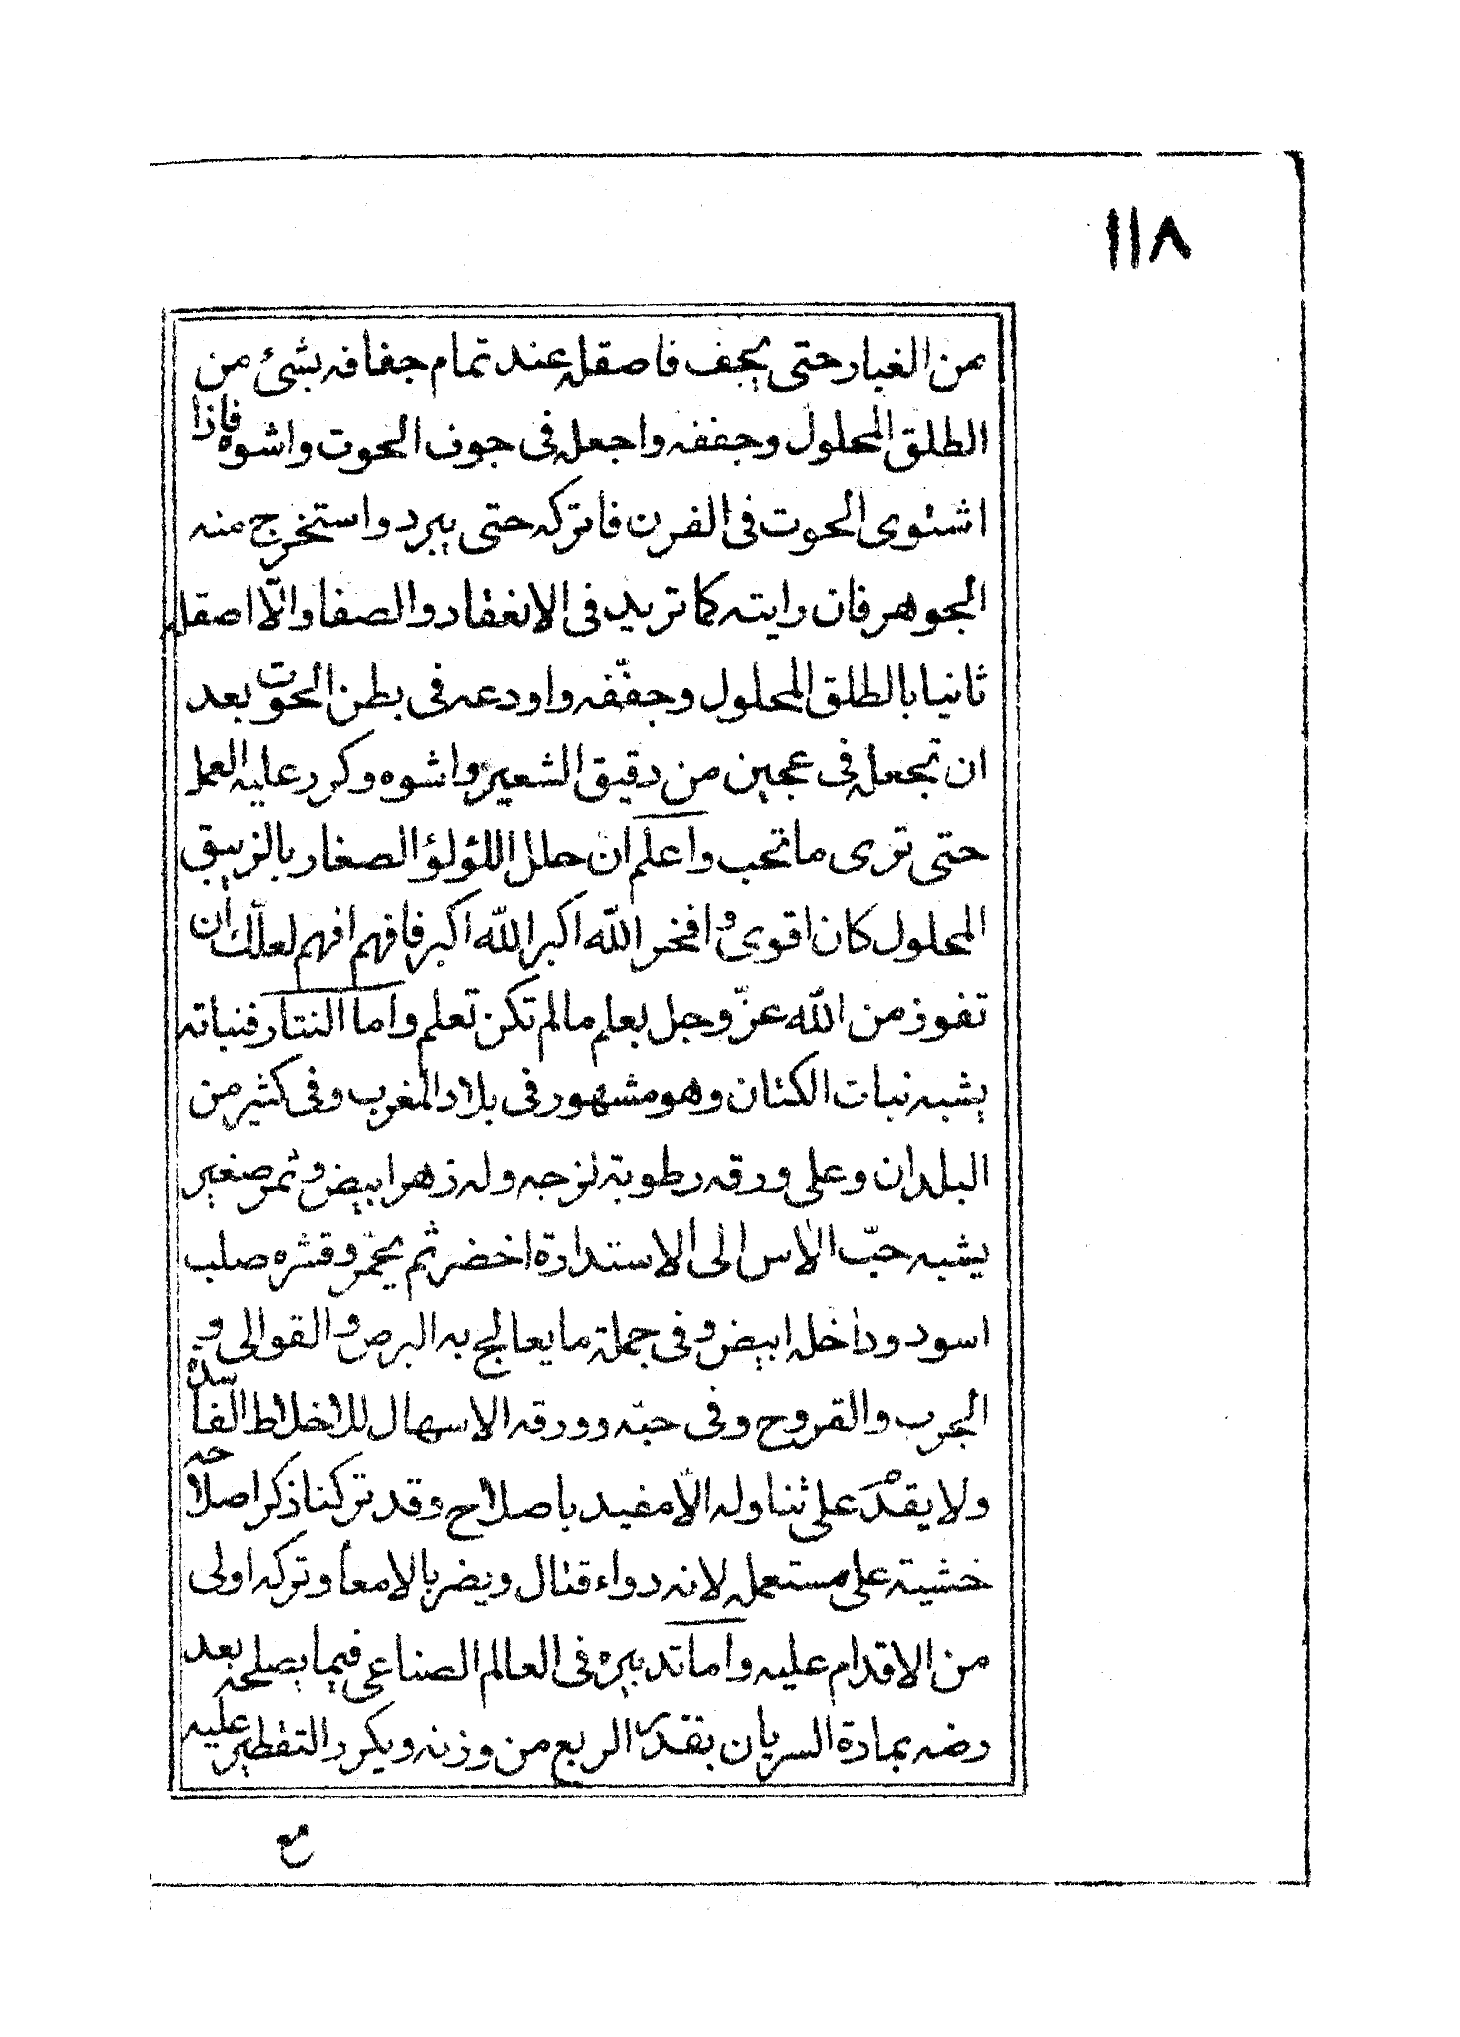 ١١٨
من الغبار حتى يجف فاصقله عند تمام جفافه بشئ من
الطلق المحلول وجففه واجعله فى جوف الحوت واشوه فاذا
اشتوى الحوت فى الفرن فاتركه حتى يبرد واستخرج منه
الجوهر فان رايته كما تريد فى الانعقاد والصفا والّا اصقله
ثانيا بالطلق المحلول وجفّفه واودعه فى بطن الحوت بعد
ان تجعله فى عجين من دقيق الشعير واشوه وكرر عليه العمل
حتى ترى ما تحب واعلم ان حلل اللؤلؤ الصغار بالزيبق
المحلول كان اقوى وافخر الله اكبر الله اكبر فافهم افهم لعلك ان
تفوز من الله عزّ وجل بعلم مالم تكن تعلم واما النتار فنباته
يشبه نبات الكتان وهو مشهور فى بلاد المغرب وفى كثير من
البلدان وعلى ورقه رطوبة لزجه وله زهر ابيض وثمر صغير
يشبه حبّ الآس الى الاستدارة اخضر ثم يحمّر وقشره صلب
اسود وداخله ابيض وفى جملة ما يعالج به البرص والقوالى و
الجرب والقروح وفى حبّه وورقه الاسهال للاخلاط الفاسدة
ولا يقدر على تناوله الّا مفيد باصلاح وقد تركنا ذكر اصلاحه
خشية على مستعمله لانه دواء قتال ويضر بالامعاء وتركه اولى
من الاقدام عليه واما تدبيره فى العالم الصناعى فيما يصلح بعد
رضه بمادة السريان بقدر الربع من وزنه ويكرر التفطير عليه
مع